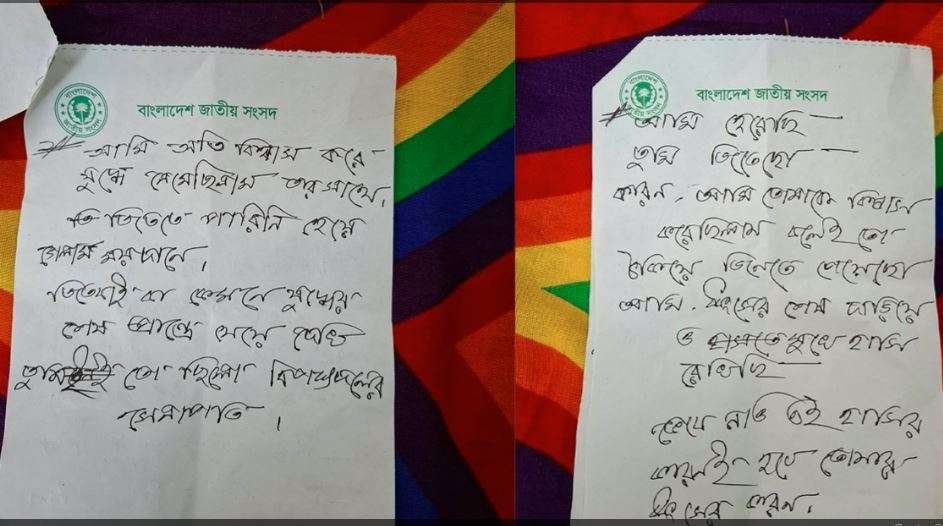 বাংলাদেশ জাতীয় সংসদ
আমি অতি বিশ্বাস করে
যুদ্ধে নেমেছিলাম তার সাথে,
জিততে পারিনি হেরে
গেলাম ময়দানে,
জিতবোই বা কেমনে যুদ্ধের
শেষ প্রান্তে এসে দেখি
তুমিই তো ছিলো বিপক্ষদলের
সেনাপতি।
বাংলাদেশ জাতীয় সংসদ
আমি হেরেছি —
তুমি জিতেছো —
কারন, আমি তোমাকে বিশ্বাস
করেছিলাম বলেই তো
ঠকিয়ে জিততে পেরেছো
আমি ধ্বংসের শেষ দাড়িয়ে
ও মুখে হাসি
রেখেছি —
জেনে নাও এই হাসির
কারনই হবে তোমার
ধ্বংসের কারন।